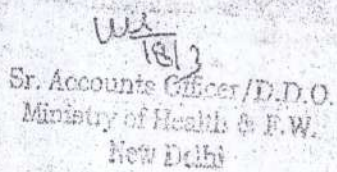 18/3
Sr. Accounts Officer/D.D.O.
Ministry of Health & F.W.
New Delhi